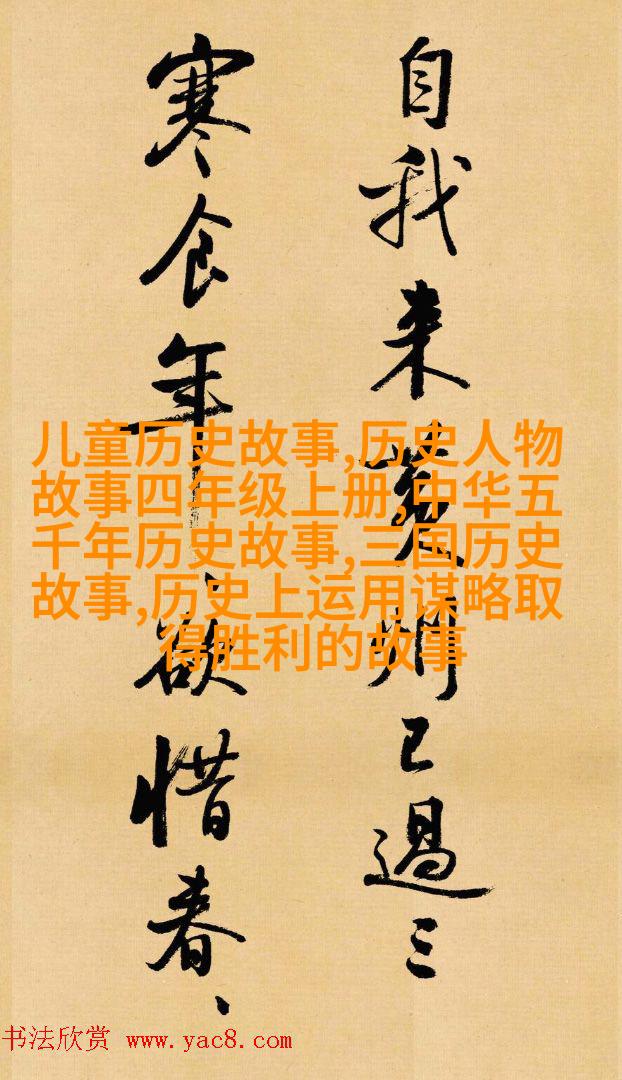 自我来黄州已過三
寒食年欲惜春、
儿童历史故事,历史人物
故事四年级上册,中华五
千年历史故事,三国历史
故事,历史上运用谋略取
得胜利的故事
书法欣赏 www.yac8.com